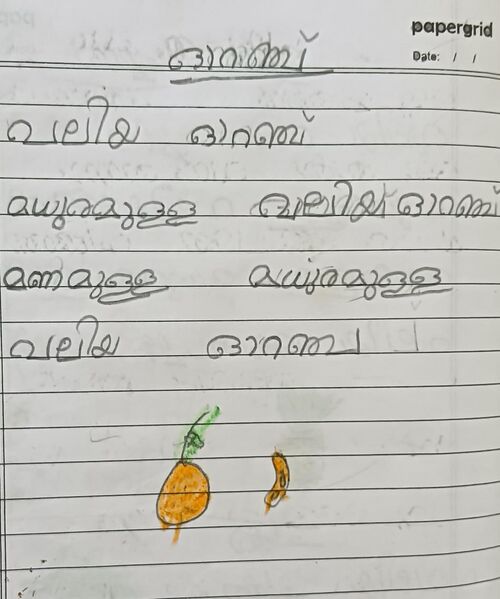 papergrid
Date: / /
ഓറഞ്ച്
വലിയ ഓറഞ്ച്
മധുരമുള്ള വലിയ ഓറഞ്ച്
മണമുള്ള മധുരമുള്ള
വലിയ ഓറഞ്ച